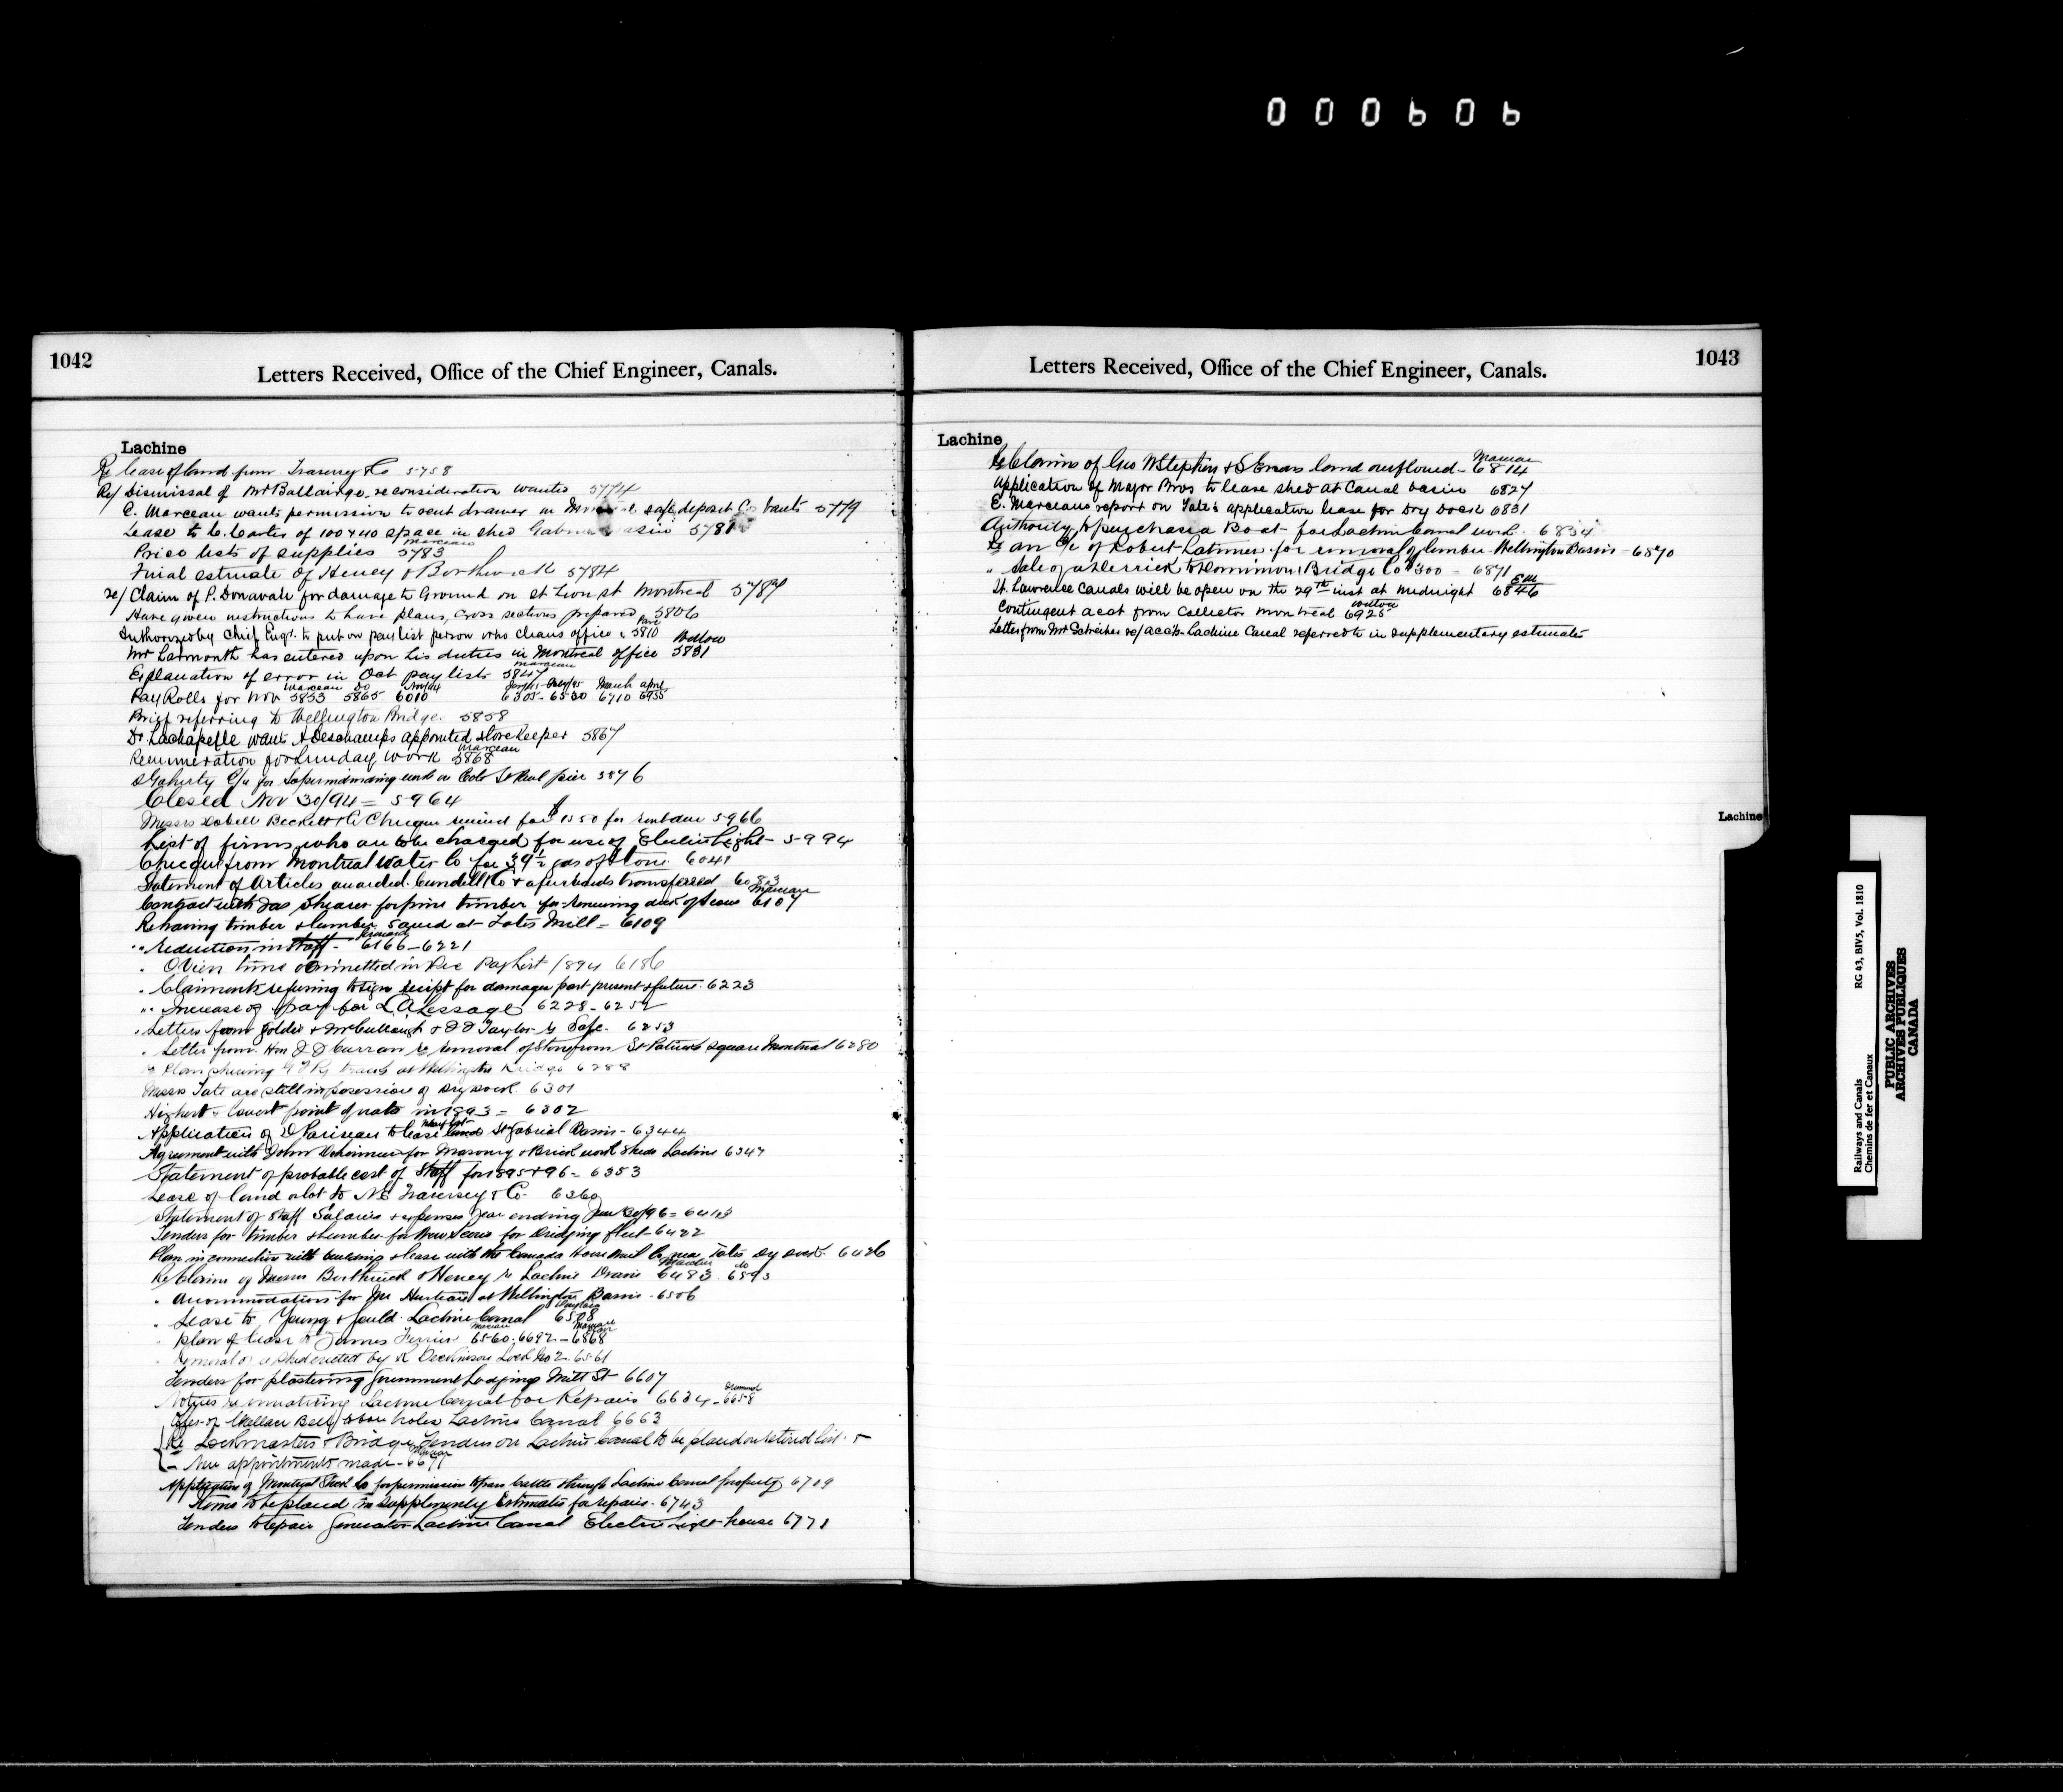 000606
1042
Letters Received, Office of the Chief Engineer, Canals.
Lachine
Re lease of land from Traversy & Co 5758
Re/ Dismissal of Mr Ballairge, reconsideration wanted 5774
E. Marceau wants permission to rent drawer in safe deposit Co vaults 5779
Lease to C. Coates of 100 x 40 space in shed 5781
Price lists of supplies 5783 Marceau
Final estimate of Heney & Borthwick 5784
re/ Claim of P. Donavan for damage to Ground on St Leon st Montreal 5787
Have given instructions to have plans, cross sections prepared 5806
Authorized by Chief Engr. to put on pay list person who cleans office 5810
Mr Larmonth has entered upon his duties in Montreal office 5831
Explanation of error in Oct pay lists 5847 Marceau
Pay Rolls for Nov 5853 5865 6010 6305 - 6530 6710 6955
Brief referring to Wellington Bridge. 5858
Dr Lachapelle wants A Deschamps appointed Storekeeper 5867
Remuneration for Sunday work 5868 Marceau
for Superintending work on Cote St Paul pier 5876
Closed Nov 30/94 = 5964
Messrs Dobell Beckett & Co Cheque received for $1550 for rent due 5966
List of firms who are to be charged for use of Electric Light - 5994
Cheque from Montreal Water Co for 39½ yds of stone 6041
Statement of Articles awarded Cundell & Co & afterwards transferred 6083
Contract with Jas Shearer for pine timber for renewing deck of scow 6107 Marceau
Re having timber & lumber sawed at Tates Mill = 6109
" reduction in staff - 6166 - 6221
" time ommitted in Dec Pay List 1894 6186
" Claimants refusing to sign receipt for damages past present & future 6223
" Increase of pay for L A Lessage 6228 - 6252
" Letters from Goldie & McCullough & J J Taylor re Safe. 6253
" Letter from Hon J J Curran re removal of Stone from St Patrick Square Montreal 6280
Plan showing G T Ry tracks at Wellington Bridge 6288
Messrs Tate are still in possession of dry dock 6301
Highest & lowest point of water in 1893 = 6302
Application of D Pariseau to lease land St Gabriel Basin - 6344
Agreement with John for Masonry & Brick work Sheds Lachine 6347
Statement of probable cost of Staff for 1895 & 96 = 6353
Lease of land & lot to Traversey & Co 6360
Statement of Staff Salaries & expenses year ending June 30/96 = 6413
Tenders for timber & lumber for New Scows for Dredging fleet 6422
Plan in connection with building & lease with the Canada Co near Tates dry dock 6426
Re Claim of Messrs Borthwick & Heney re Lachine Drain 6483 6593
" Accommodation for Mr at Wellington Basin - 6506
" Lease to Young & Gould Lachine Canal 6528
" Plan of lease to James Ferrier 6560. 6692 - 6868
" Removal of a shed erected by R Dickinson Lock No 2. 6561
Tenders for plastering Government Lodgings Mill St - 6607
Notices re unwatering Lachine Canal for Repairs 6634 - 6658
Offer of Wallace Bell to bore holes Lachine Canal 6663
Re Lockmasters & Bridge Tenders on Lachine Canal to be placed on retired list. &
- New appointments made - 6697
Application of Montreal Co for permission to pass cattle through Lachine Canal property 6709
Items to be placed in Supplementy Estimates for repairs - 6743
Tenders to repair Generator Lachine Canal Electric Light house 6771
1043
Letters Received, Office of the Chief Engineer, Canals.
Lachine
Re Claims of Geo W Stephen & S Evans land overflowed - 6814 Marceau
Application of Major Bros to lease shed at Canal basin 6827
E. Marceaus report on Tate's application lease for Dry Dock 6831
Authority to purchase a Boat for Lachine Canal work - 6834
Re an a/c of Robert Latimers for removal of lumber Wellington Basin - 6870
" Sale of a Derrick to Dominion Bridge Co $300 - 6871
St. Lawrence Canals will be open on the 29th inst at midnight 6846
Contingent acct from Collector Montreal 6925
Letter from Mr Schreiber re/ accts Lachine Canal referred to in supplementary estimates
Lachine
Railways and Canals RG 43, BIV5, Vol. 1810
Chemins de fer et Canaux
PUBLIC ARCHIVES
ARCHIVES PUBLIQUES
CANADA